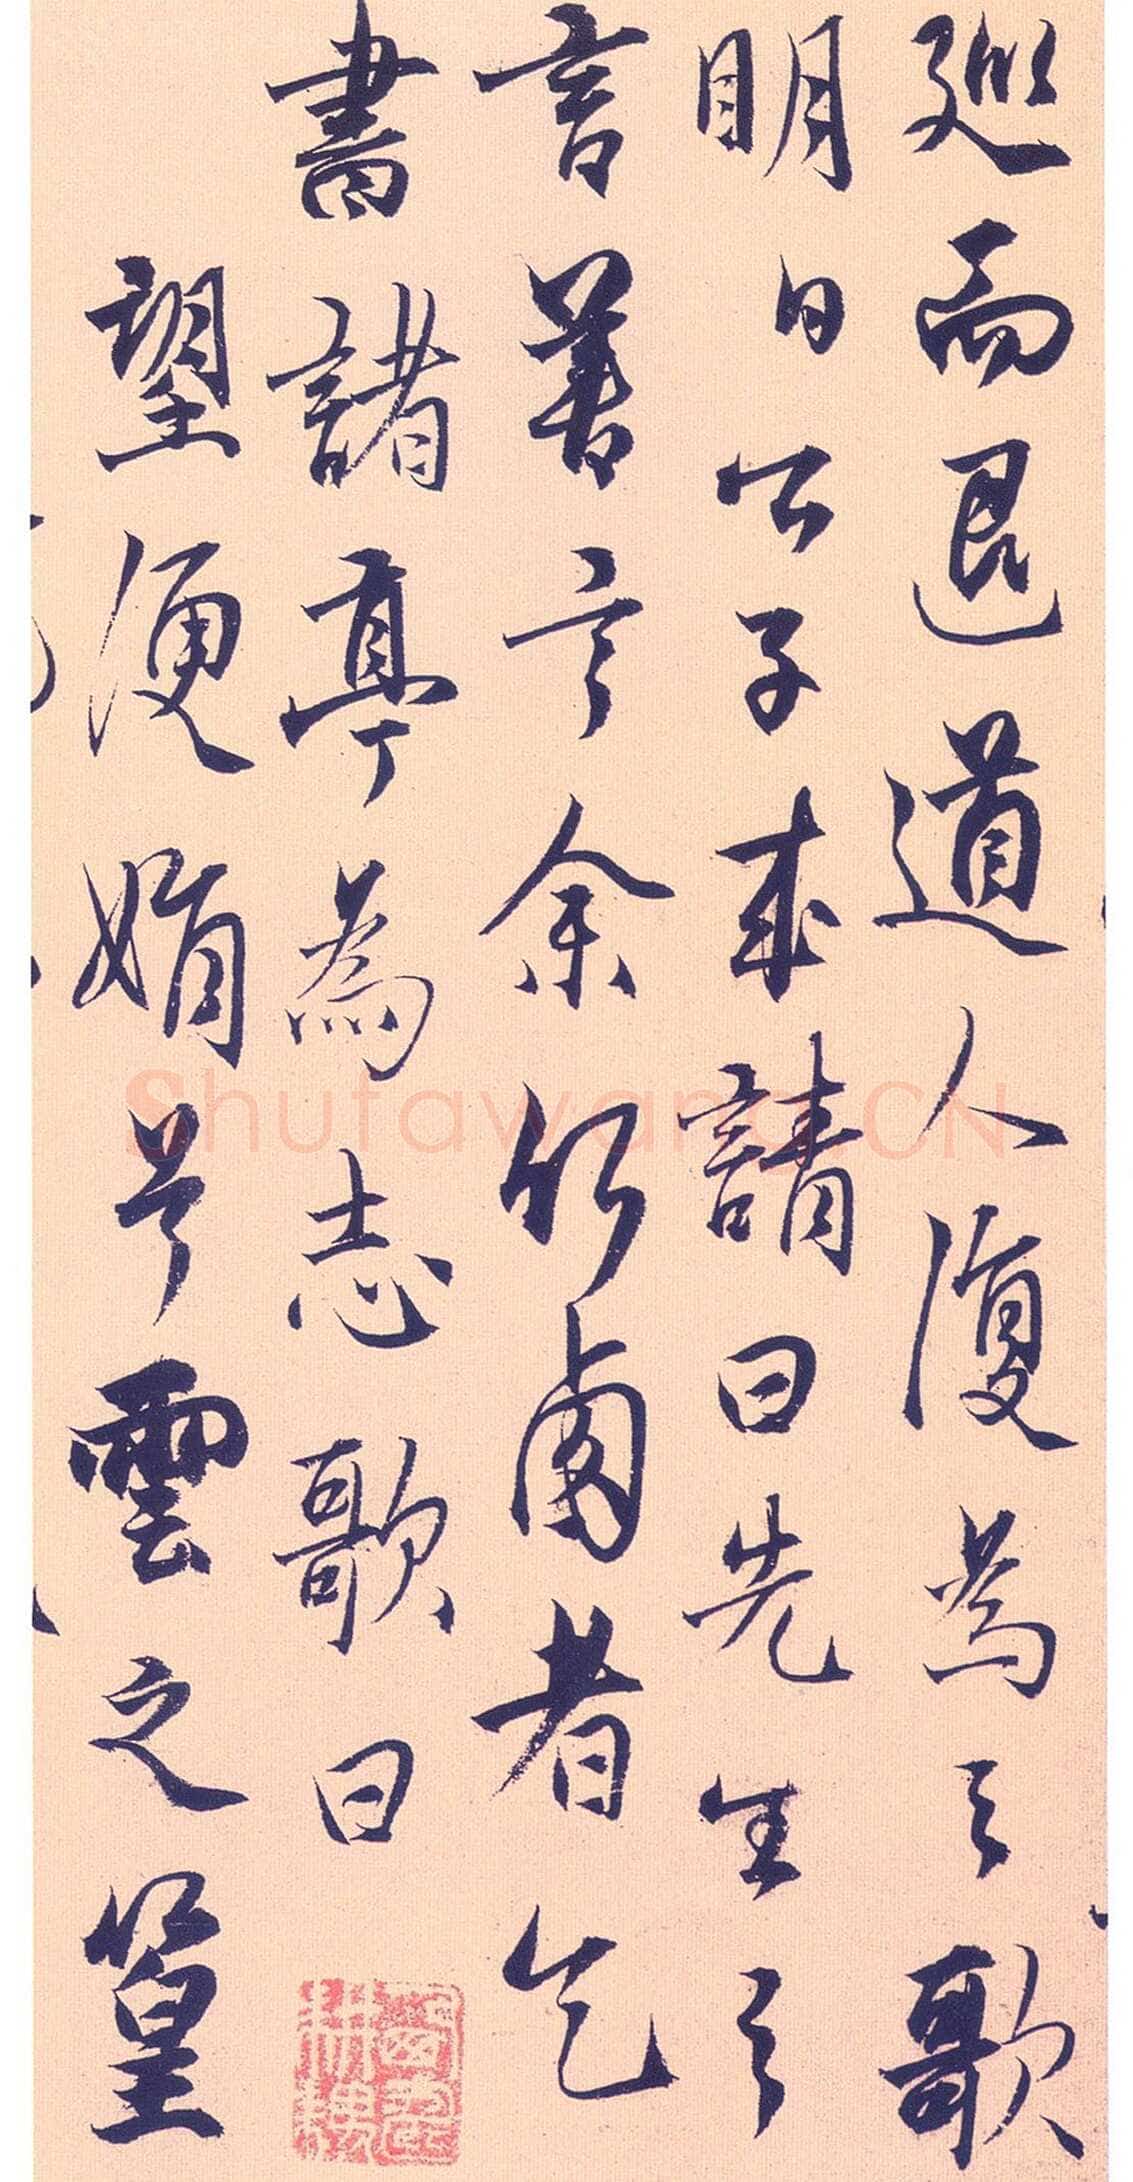 巡而退道人復為之歌
明日公子來請曰先生之
言善言余所圃者乞
書諸亭為志歌曰
望便娟兮雲之篁
Shufawang.CN